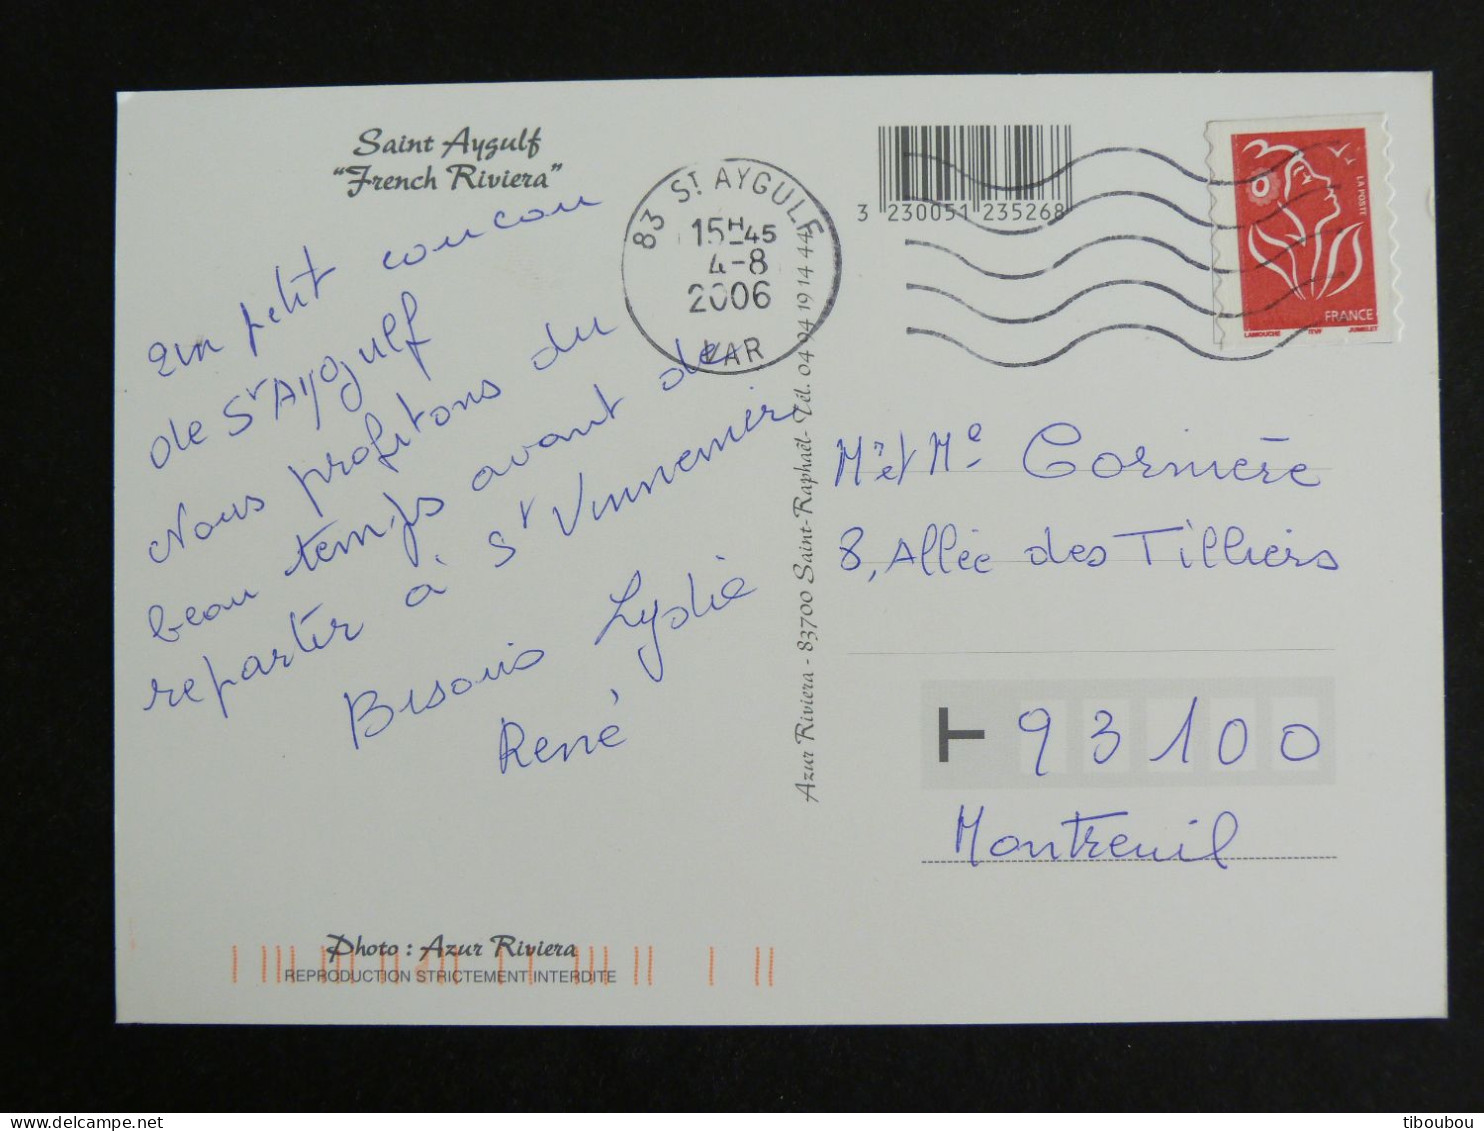 Saint Aygulf
"French Riviera"
un petit coucou
de St Aygulf
Nous profitons du
beau temps avant de
repartir à St Vinnemer
Bisouis Lydie
René
83 ST AYGULF
15H45
4-8
2006
VAR
3 230051 235268
LA POSTE
FRANCE
LAMOUCHE ITVF JUMELET
Azur Riviera - 83700 Saint-Raphaël - Tél. 04 94 19 14 44
Mr et Me Cornière
8, Allée des Tilliers
93100
Montreuil
Photo : Azur Riviera
REPRODUCTION STRICTEMENT INTERDITE
tiboubou